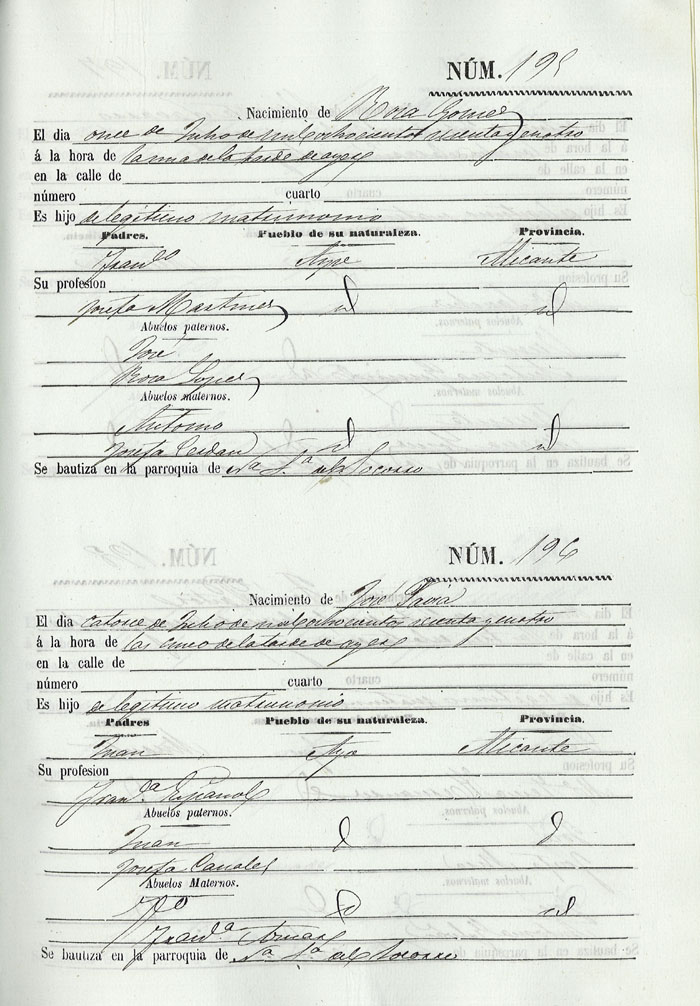 NÚM. 195
Nacimiento de Rosa Gomes
El dia once de Julio de mil ochocientos sesenta y cuatro
á la hora de la una de la tarde de ayer
en la calle de
número cuarto
Es hijo de legitimo matrimonio
Padres. Pueblo de su naturaleza. Provincia.
Fran.co Aspe Alicante
Su profesion
Josefa Martines id id
Abuelos paternos.
José
Rosa Lopes
Abuelos maternos.
Antonio
Josefa Cerdan id id
Se bautiza en la parroquia de Na Sa del Socorro
NÚM. 196
Nacimiento de José Pavia
El dia catorce de Julio de mil ochocientos sesenta y cuatro
á la hora de las cinco de la tarde de ayer
en la calle de
número cuarto
Es hijo de legitimo matrimonio
Padres Pueblo de su naturaleza. Provincia.
Juan Alicante
Su profesion
Fran.ca Español
Abuelos paternos.
Juan
Josefa Canales
Abuelos Maternos.
id
Fran.ca
Se bautiza en la parroquia de Na Sa del Socorro